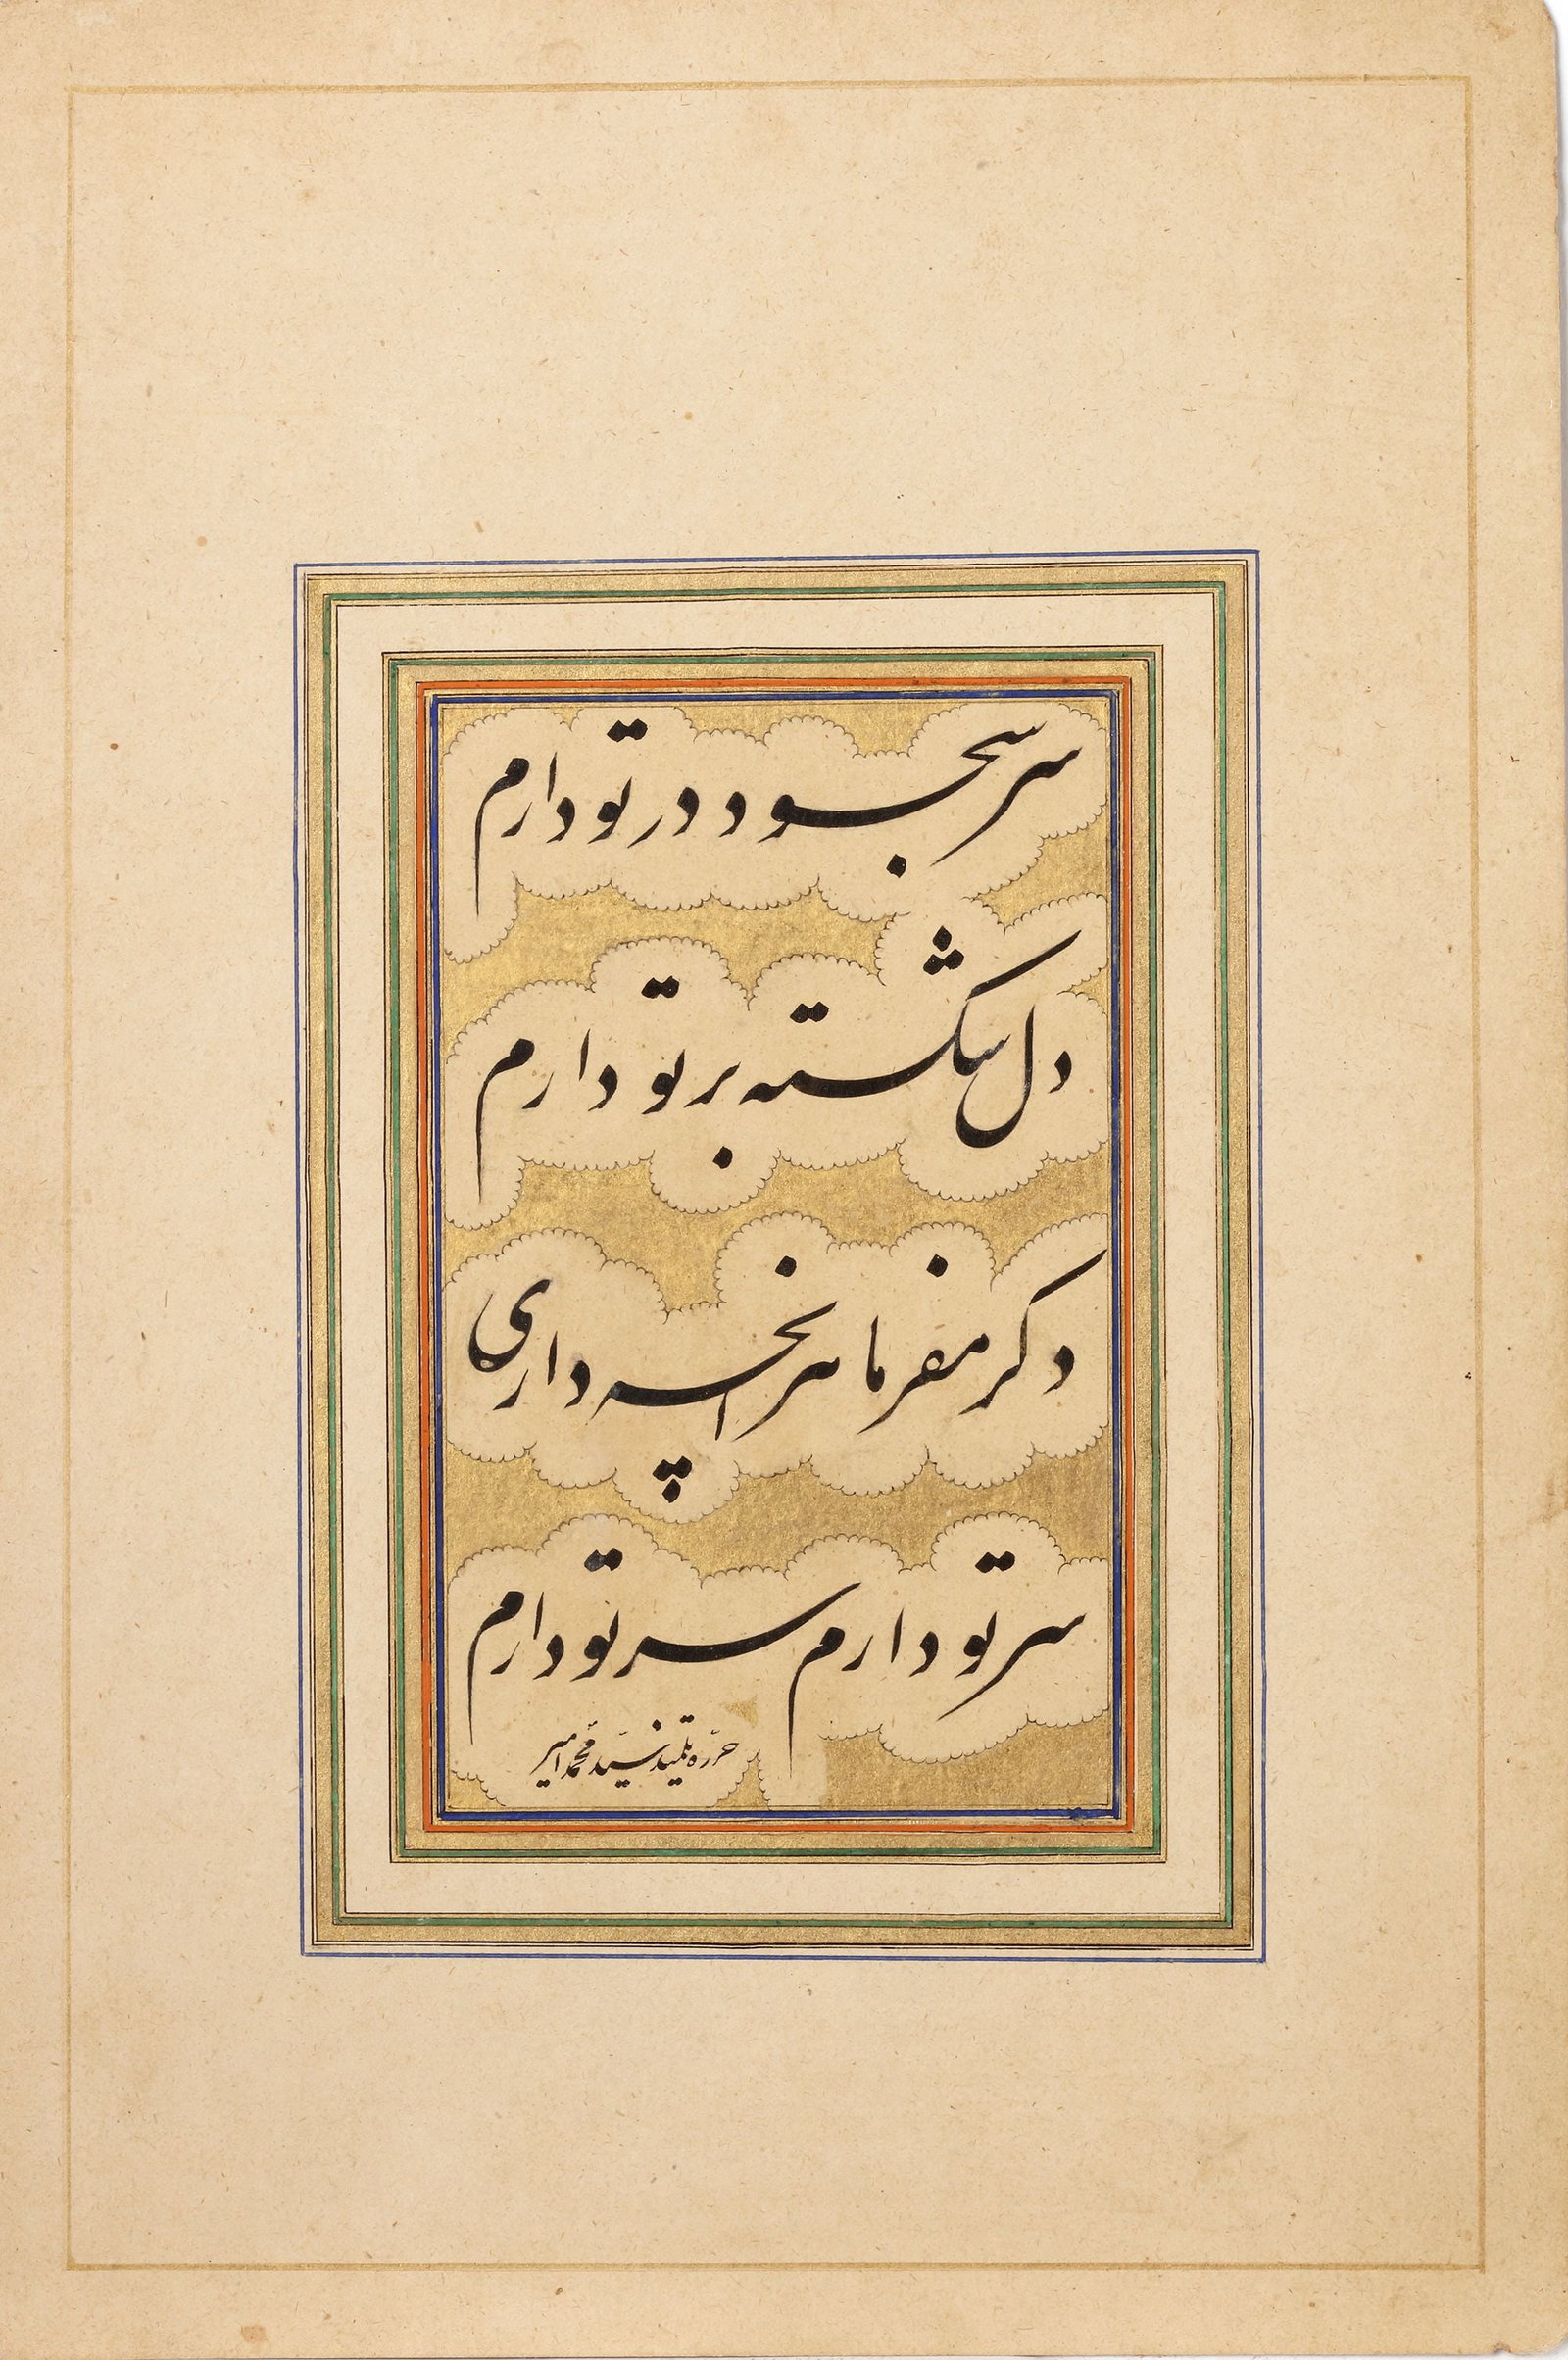 سر سجود در تو دارم
دل شکسته بر تو دارم
دکر مفرما سر انچه داری
سر تو دارم سر تو دارم
حرره تلمیذ سید محمد امیر